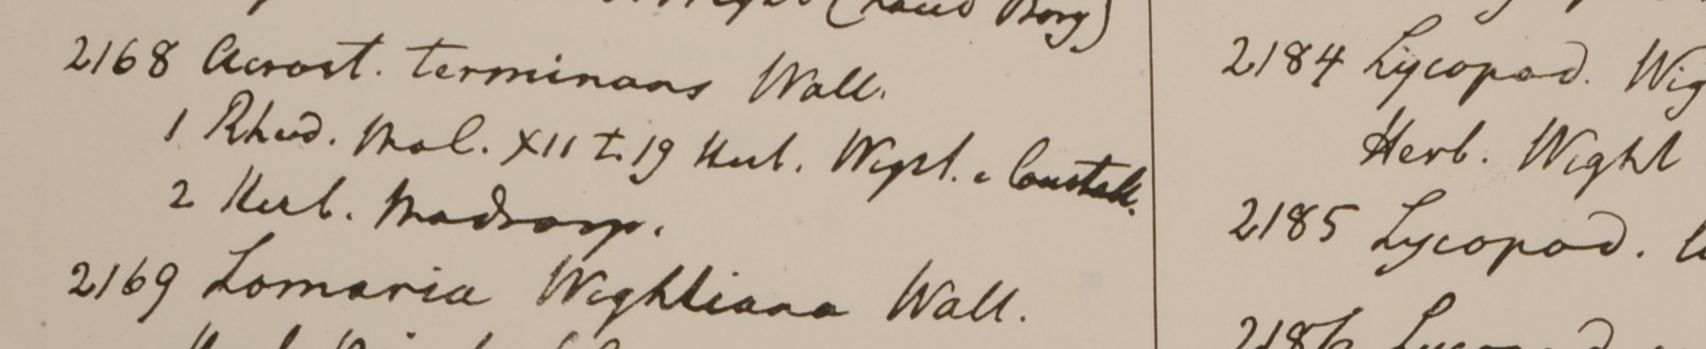 (Laced Borg)
2168 Acrost. terminans Wall.
1 Rheed. Mal. XII t. 19 Herb. Wight.
2 Herb. Madrasp.
2169 Lomaria Wightiana Wall.
2184 Lycopod. Wig
Herb. Wight
2185 Lycopod.
2186